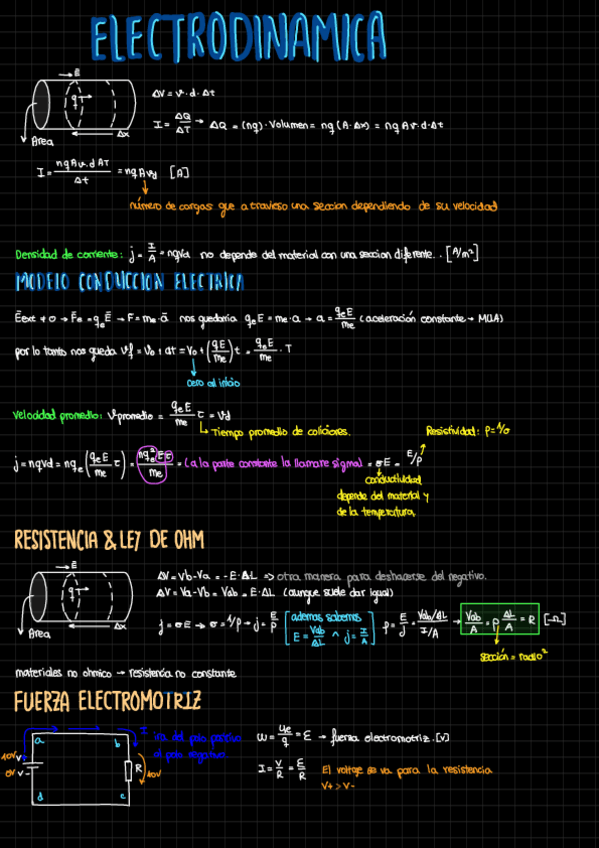 ELECTRODINAMICA
E
q
Area
Δx
ΔV = v · d · Δt
I = ΔQ/ΔT → ΔQ = (nq) · Volumen = nq (A · Δx) = nq A v · d · Δt
I = nq A v · d ΔT / Δt = nq A vd [A]
número de cargas que atravieso una seccion dependiendo de su velocidad
Densidad de corriente: j = I/A = nqvd no depende del material con una seccion diferente.. [A/m²]
MODELO CONDUCCION ELECTRICA
Eext ≠ 0 → Fe = qe E → F = me · a nos quedaria qe E = me · a → a = qe E/me (aceleración constante → MUA)
por lo tanto nos queda Vf = Vo + at = Vo + (qE/me) t = qe E/me · T
cero al inicio
Velocidad promedio: Vpromedio = qe E/me τ = Vd
Tiempo promedio de coliciones.
Resistividad: ρ = 1/σ
j = nqvd = nqe (qe E/me τ) = nqe² E τ/me = (a la parte constante la llamare sigma) = σE = E/ρ
conductividad
depende del material y
de la temperatura,
RESISTENCIA & LEY DE OHM
E
q
Area
Δx
ΔV = Vb - Va = - E · ΔL ⇒ otra manera para deshacerse del negativo.
ΔV = Va - Vb = Vab = E · ΔL (aunque suele dar igual)
j = σE → σ = 1/ρ → j = E/ρ [ademas sabemos E = Vab/ΔL ^ j = I/A] ρ = E/j = Vab/ΔL / I/A → Vab/A = ρ ΔL/A = R [Ω]
sección = radio²
materiales no ohmico → resistencia no constante
FUERZA ELECTROMOTRIZ
I ira del polo positivo
al polo negativo
a b
10V V+
0V V-
R
10V
d c
W = Ue/q = E → fuerza electromotriz. [V]
I = V/R = E/R
El voltage se va para la resistencia
V+ > V-